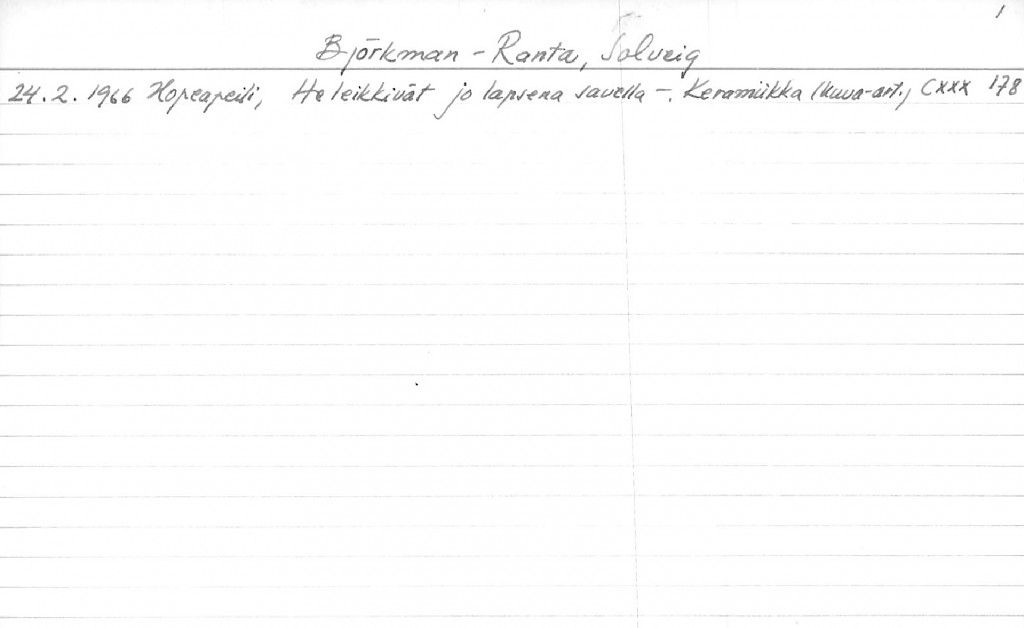 1
Björkman - Ranta, Solveig
24.2.1966 Hopeapeili, He leikkivät jo lapsena savella -. Keramiikka (kuva-art.) CXXX 178